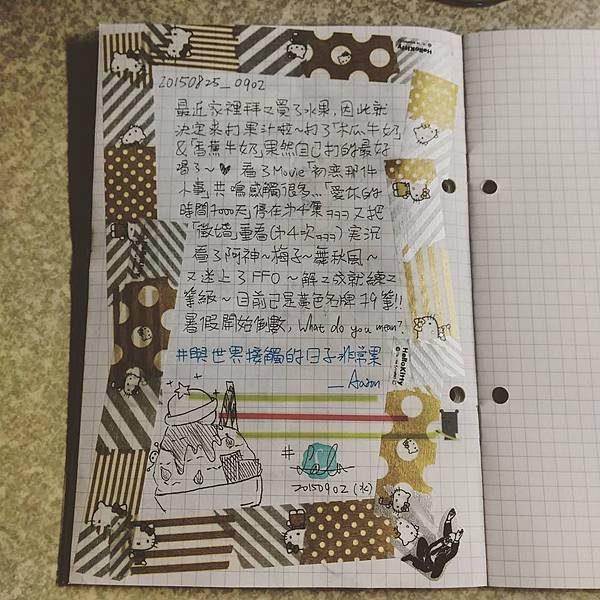 20150825_0902
最近家裡拜又買了水果,因此就
決定來打果汁啦~打了「木瓜牛奶」
&「香蕉牛奶」果然自己打的最好
喝了~♥ 看了Movie「初戀那件
小事」共鳴感觸很多...「愛你的
時間7000天」停在第4集qqq又把
「徵婚」重看(第4次qqq)實況
看了阿神~梅子~舞秋風~
又迷上了FFO~解了成就練了
等級~目前已是黃色名牌79等!!
暑假開始倒數, What do you mean?
#與世界接觸的日子非常果
_Aaron
#
20150902(水)
HELLO KITTY
HELLO KITTY